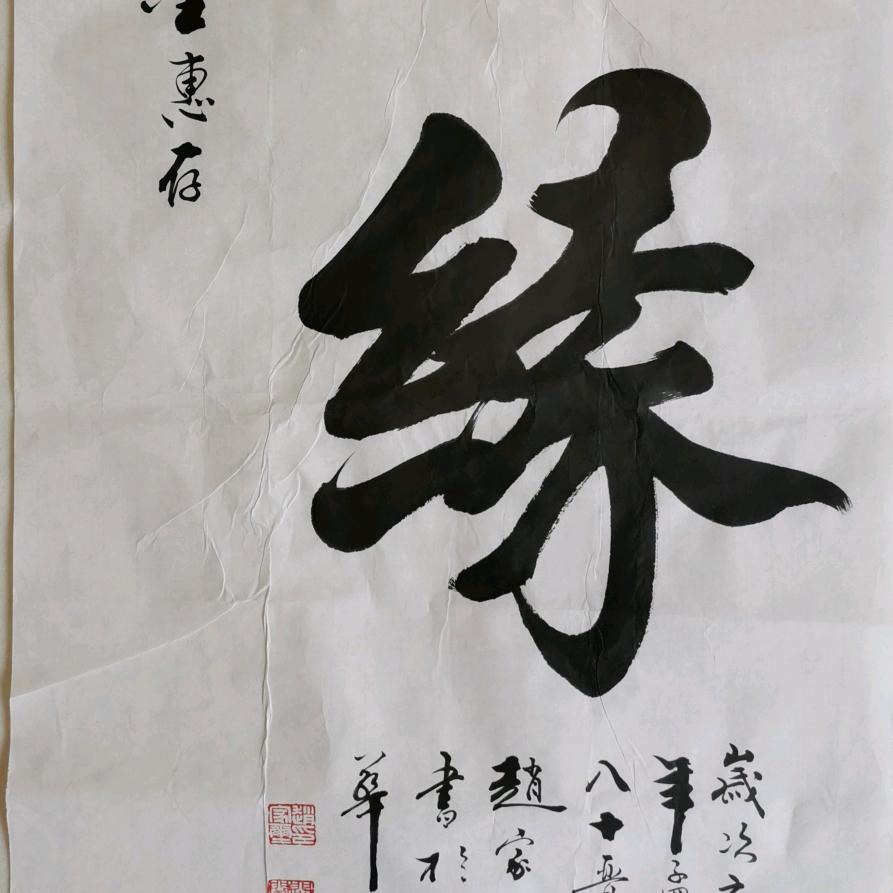 緣
惠存
歲次
年
八十
趙家
書於
華